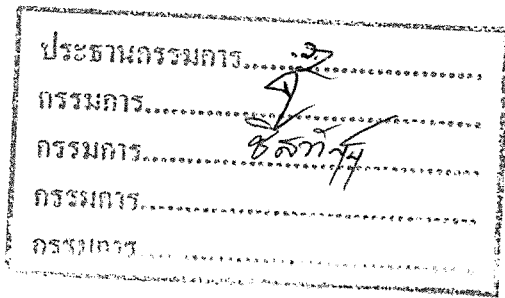 ประธานกรรมการ
กรรมการ
กรรมการ
กรรมการ
กรรมการ